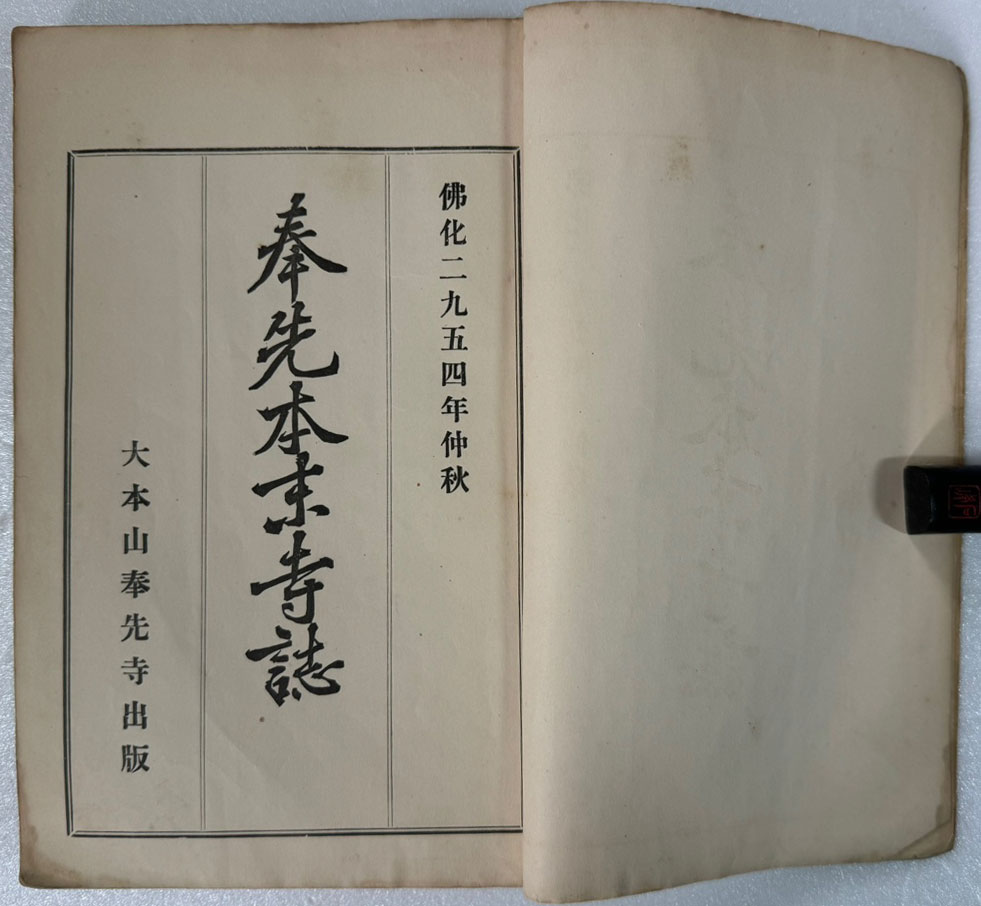 佛化二九五四年仲秋
奉先本末寺誌
大本山奉先寺出版